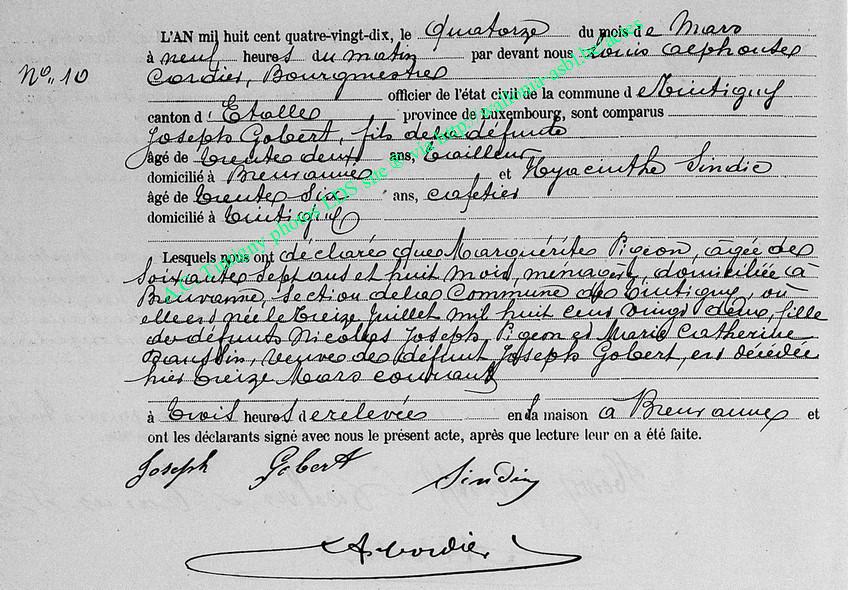 L'AN mil huit cent quatre-vingt-dix, le quatorze du mois de Mars
à neuf heures du matin par devant nous Louis Alphonse
N° 10
Cordier, Bourgmestre
officier de l'état civil de la commune de Tintigny
canton d'Etalle province de Luxembourg, sont comparus
Joseph Gobert, fils de la défunte
âgé de trente deux ans, tailleur
domicilié à Breuvanne et Hyacinthe Sindic
âgé de trente six ans, cafetier
domicilié à Tintigny
Lesquels nous ont déclaré que Marguérite Pigeon, agée de
soixante sept ans et huit mois, menagère, domiciliée à
Breuvanne, section de la Commune de Tintigny, où
elle est née le treize Juillet mil huit cent vingt deux, fille
de défunts Nicolas Joseph Pigeon et Marie Catherine
veuve de défunt Joseph Gobert, est décédée
hier treize Mars courant
à trois heures de relevée en la maison à Breuvanne et
ont les déclarants signé avec nous le présent acte, après que lecture leur en a été faite.
Joseph Gobert Sindic
A. Cordier
A.C. Tintigny photos LDS site @ via http://wallonia-asbl.be actes